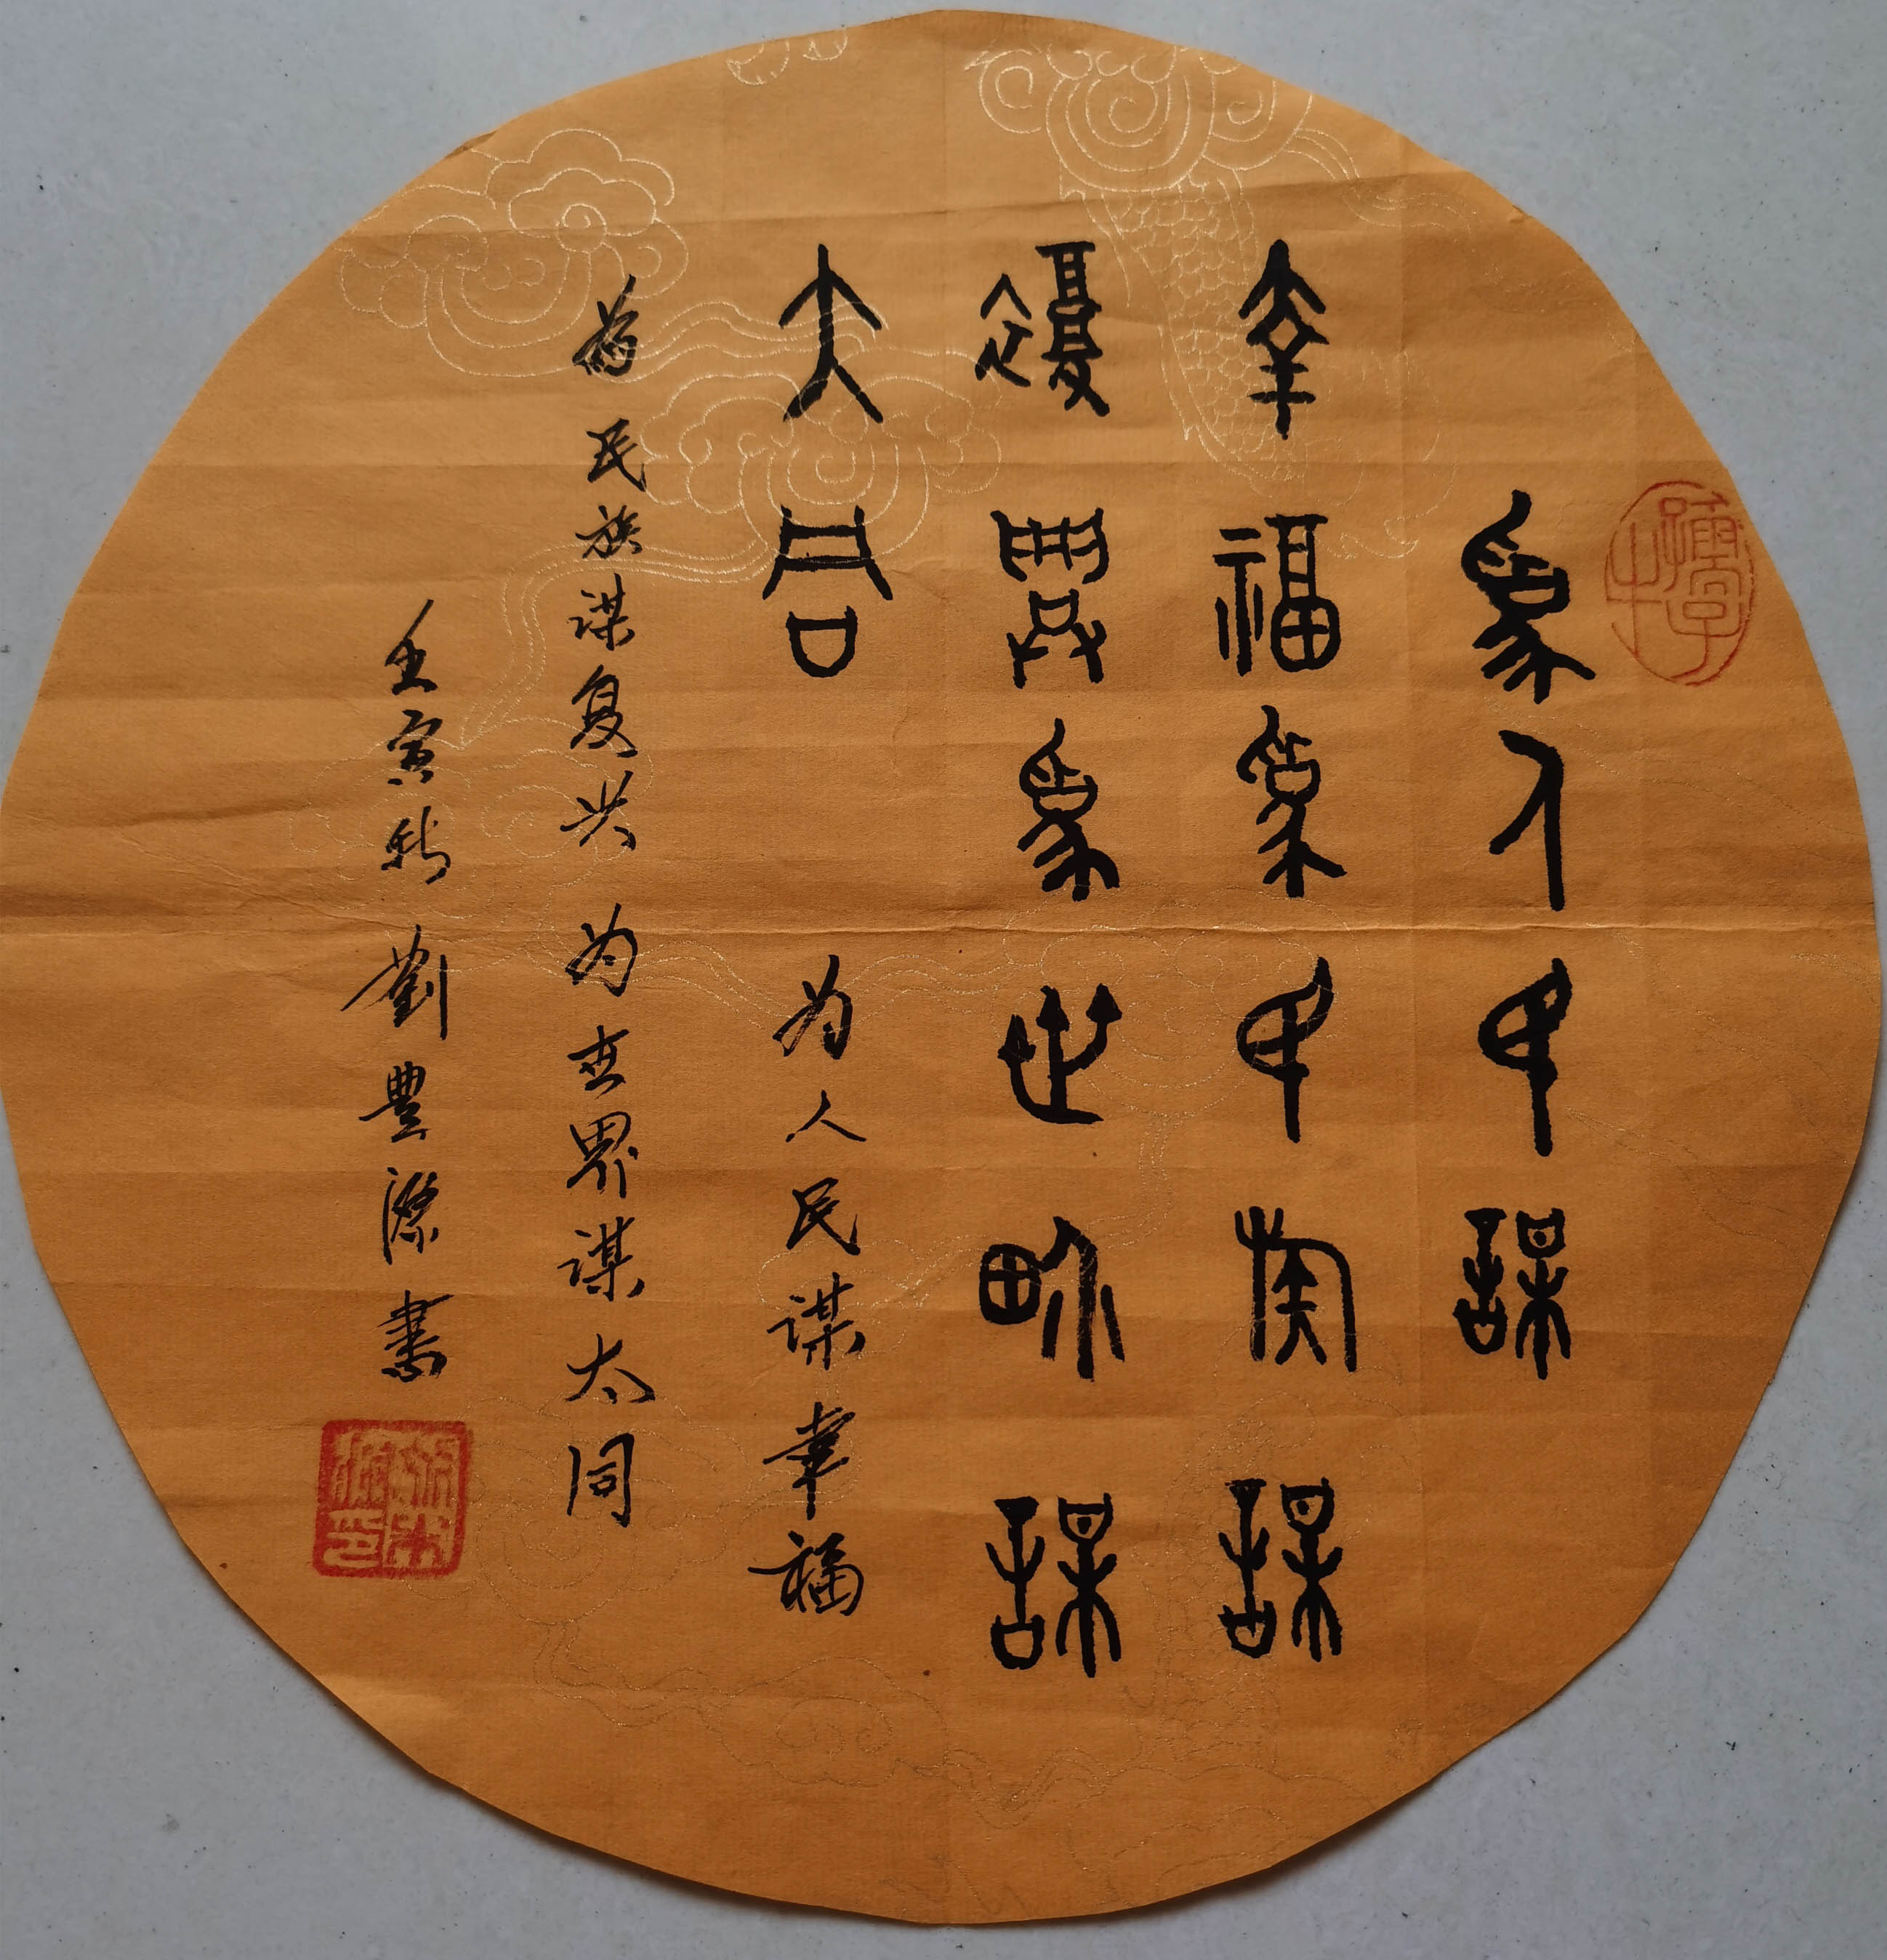 為人民謀
幸福為民族謀
復興為世界謀
大同
为人民谋幸福
為民族谋复兴为世界谋大同
壬寅秋劉豊潔書